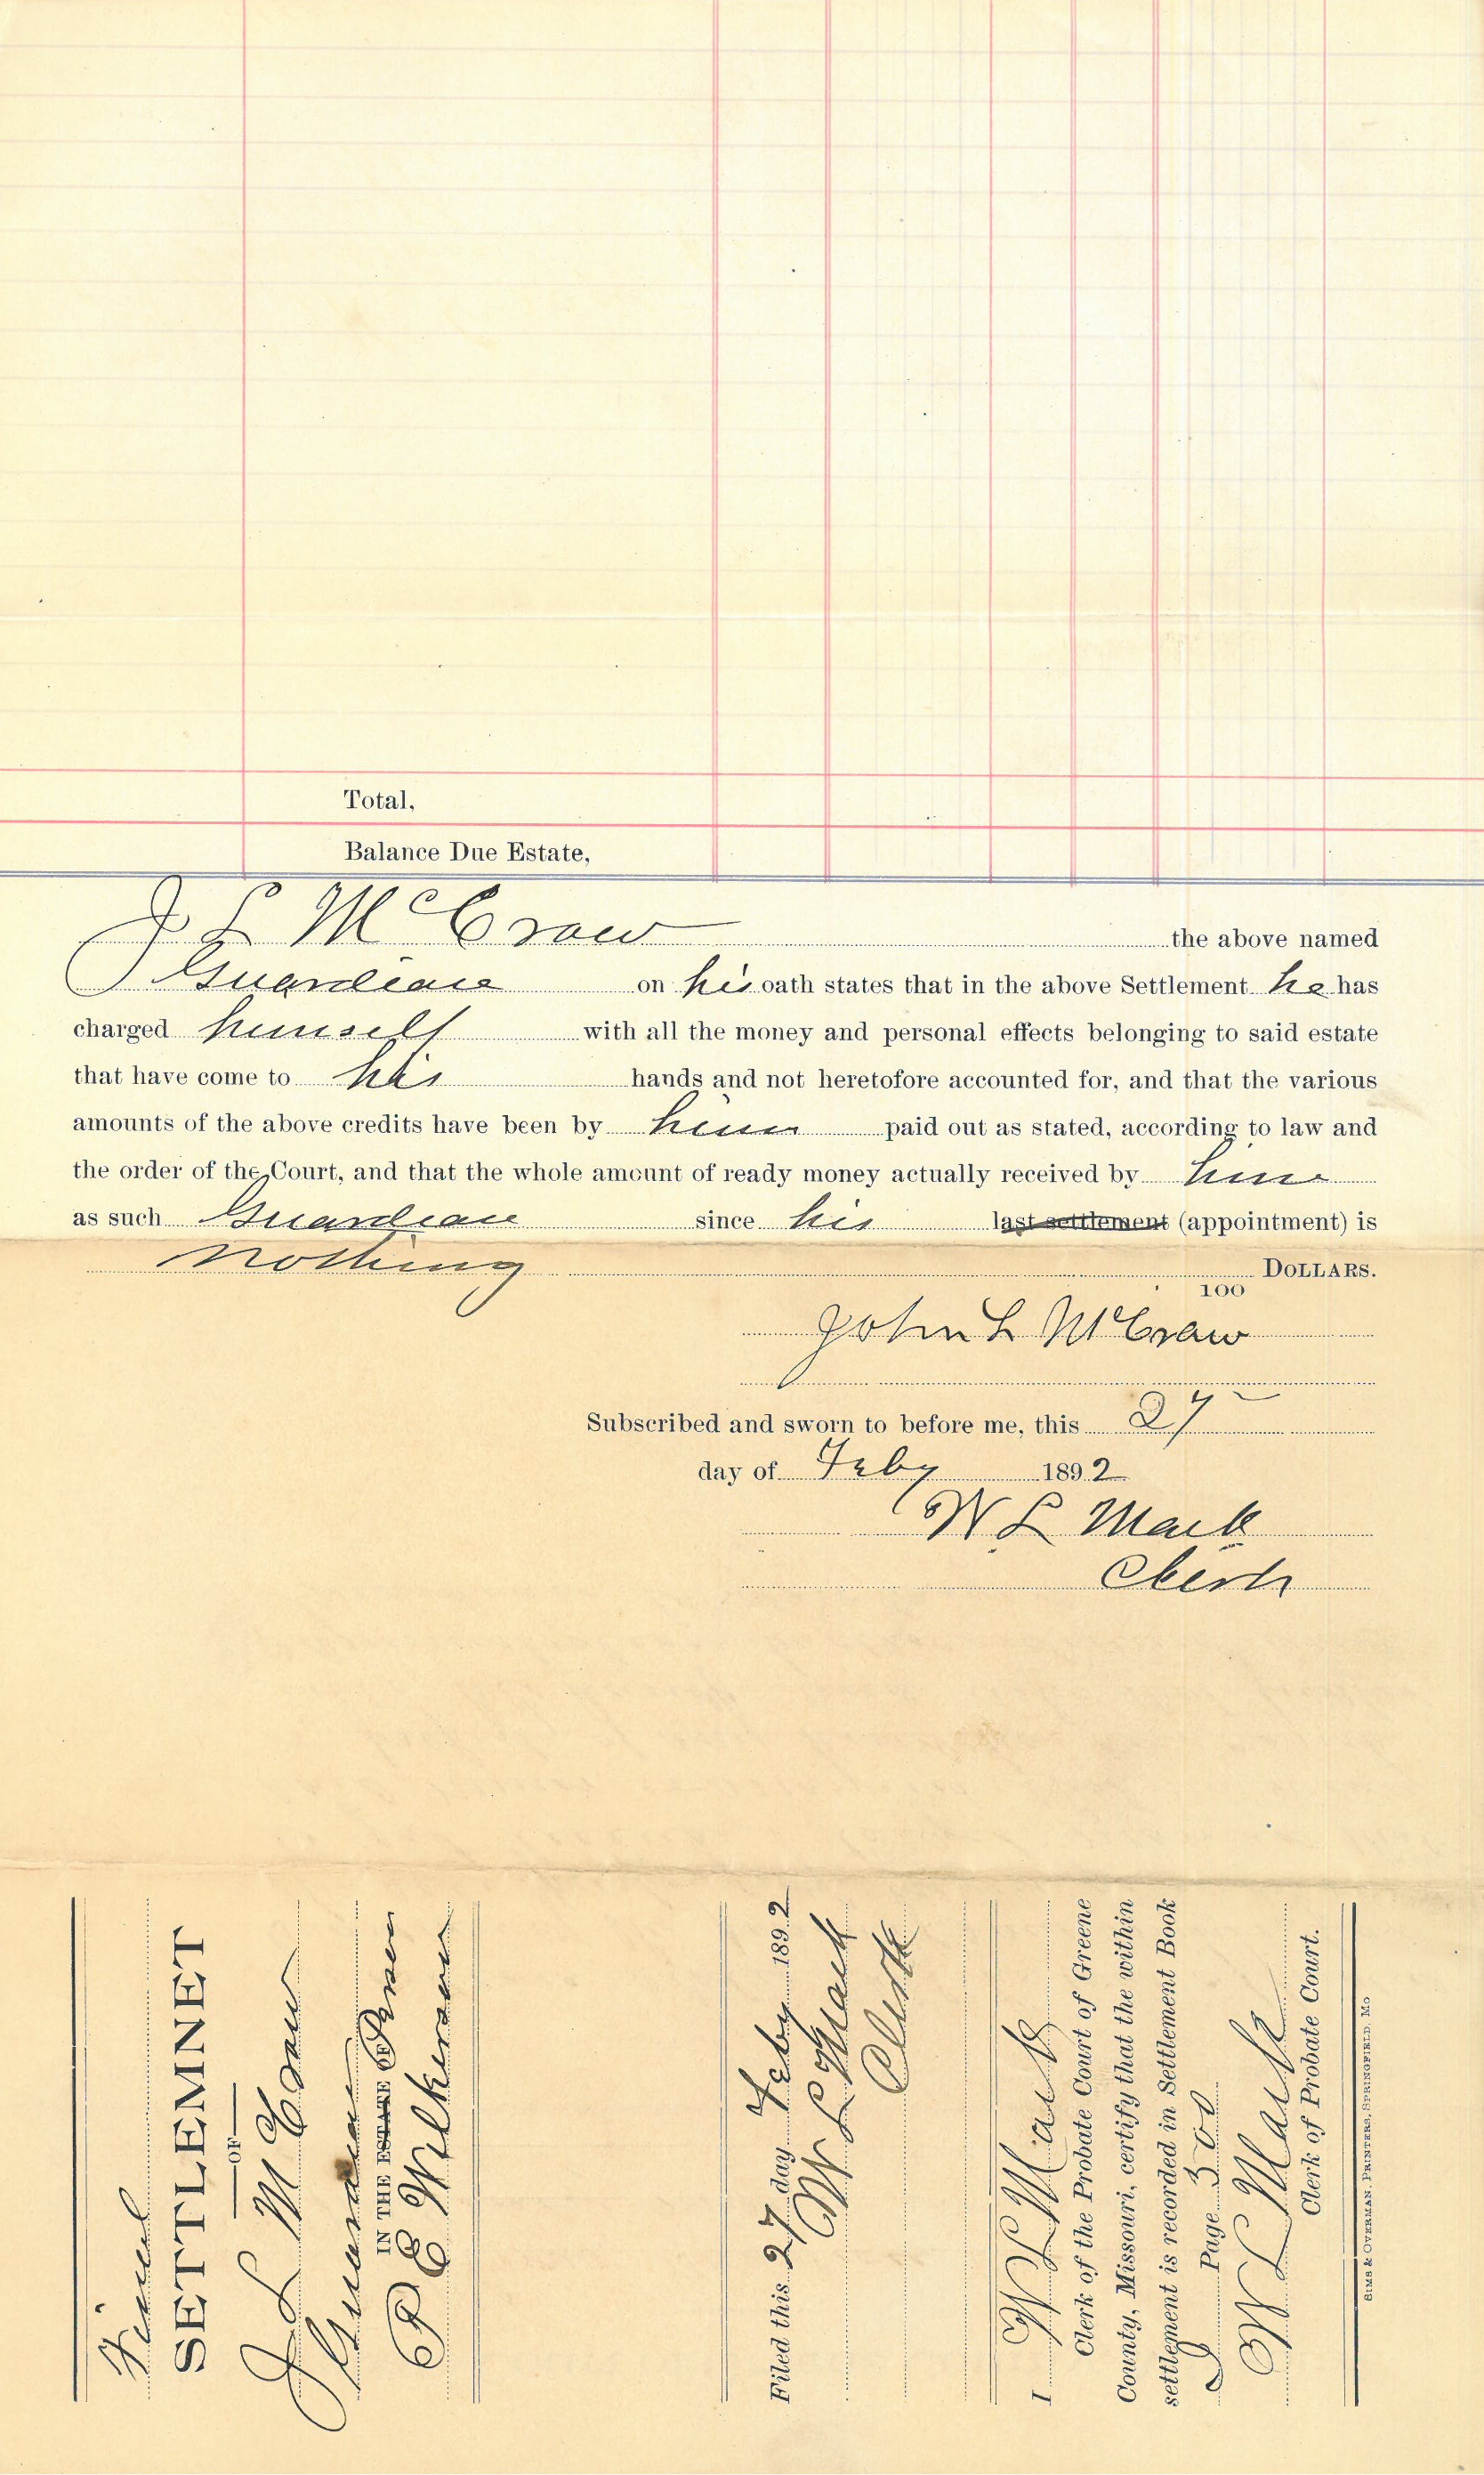 Total,
Balance Due Estate,
J L McCraw the above named
Guardian on his oath states that in the above Settlement he has
charged himself with all the money and personal effects belonging to said estate
that have come to his hands and not heretofore accounted for, and that the various
amounts of the above credits have been by him paid out as stated, according to law and
the order of the Court, and that the whole amount of ready money actually received by him
as such Guardian since his last settlement (appointment) is
Nothing DOLLARS.
100
John L McCraw
Subscribed and sworn to before me, this 27
day of Feby 1892
W L Mack
Clerk
Final
SETTLEMNET
OF
J L McCraw
Guardian
IN THE ESTATE OF Person
P E Wilkerson
Filed this 27 day Feby 1892
W L Mack
Clerk
I W L Mack
Clerk of the Probate Court of Greene
County, Missouri, certify that the within
settlement is recorded in Settlement Book
J Page 300
W L Mack
Clerk of Probate Court.
SIMS & OVERMAN, PRINTERS, SPRINGFIELD, MO